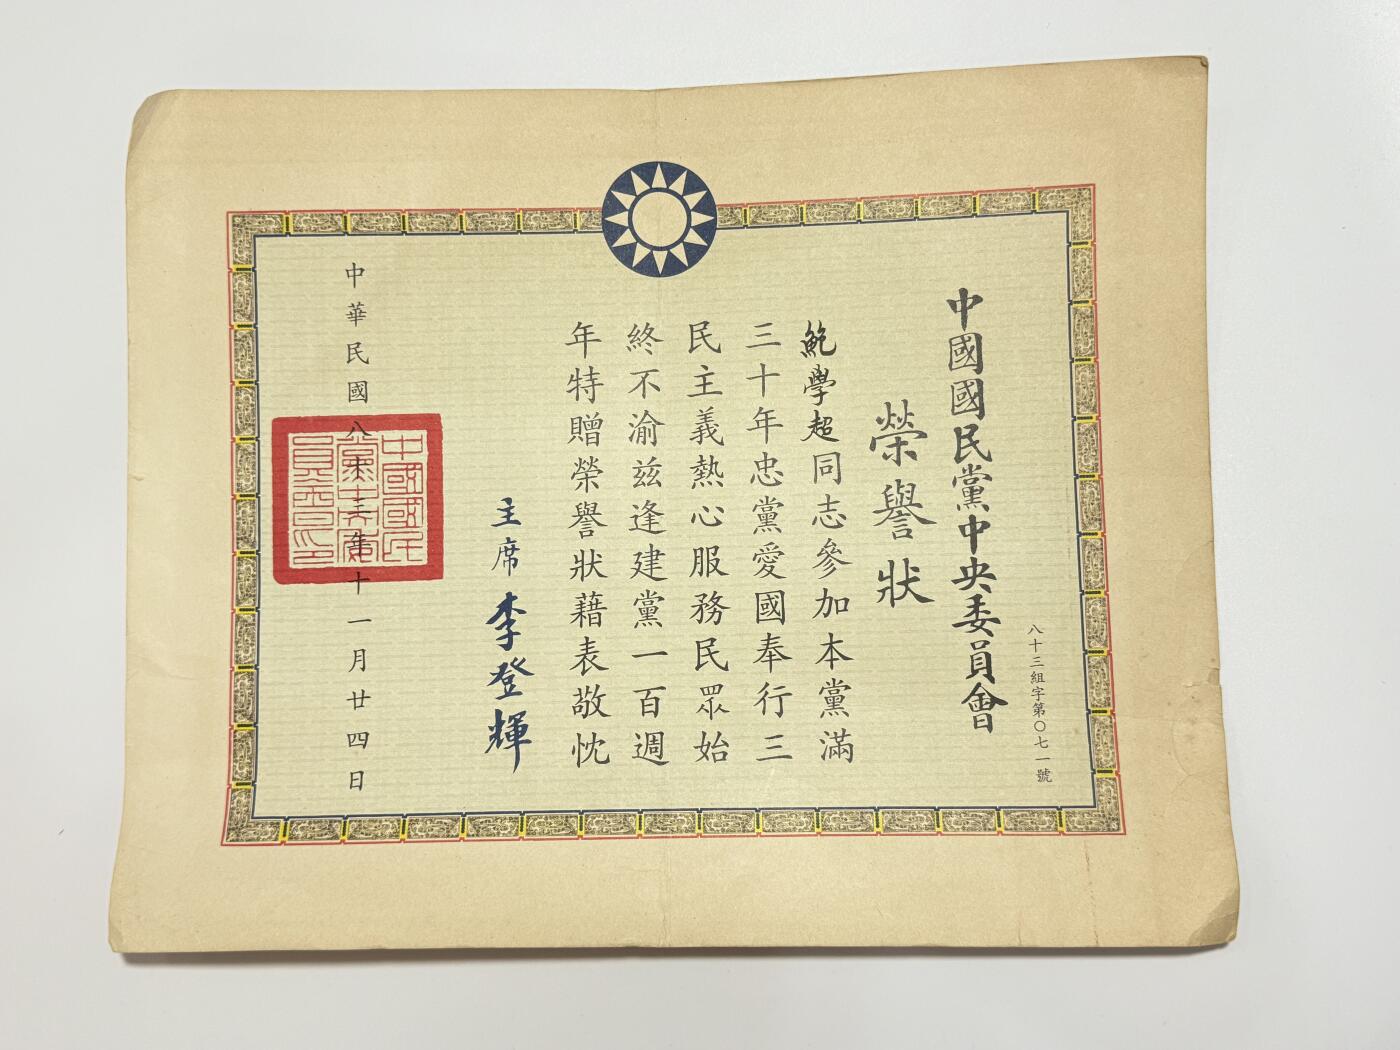 中國國民黨中央委員會
榮譽狀
八十三組字第〇七一號
鮑學超同志參加本黨滿
三十年忠黨愛國奉行三
民主義熱心服務民眾始
終不渝茲逢建黨一百週
年特贈榮譽狀藉表敬忱
主席 李登輝
中華民國八十三年十一月廿四日
中國國民黨中央委員會印